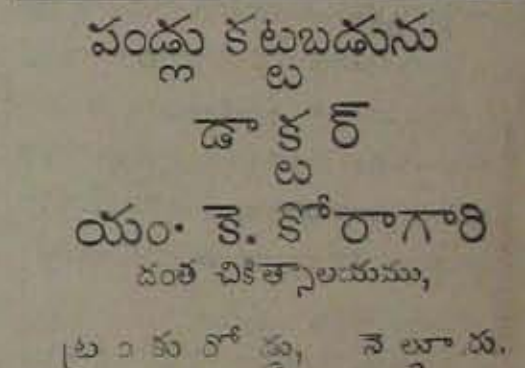 పండ్లు కట్టబడును
డాక్టర్
యం. కె. కోరాగారి
దంత చికిత్సాలయము,
ట్రంకు రోడ్డు, నెల్లూరు.